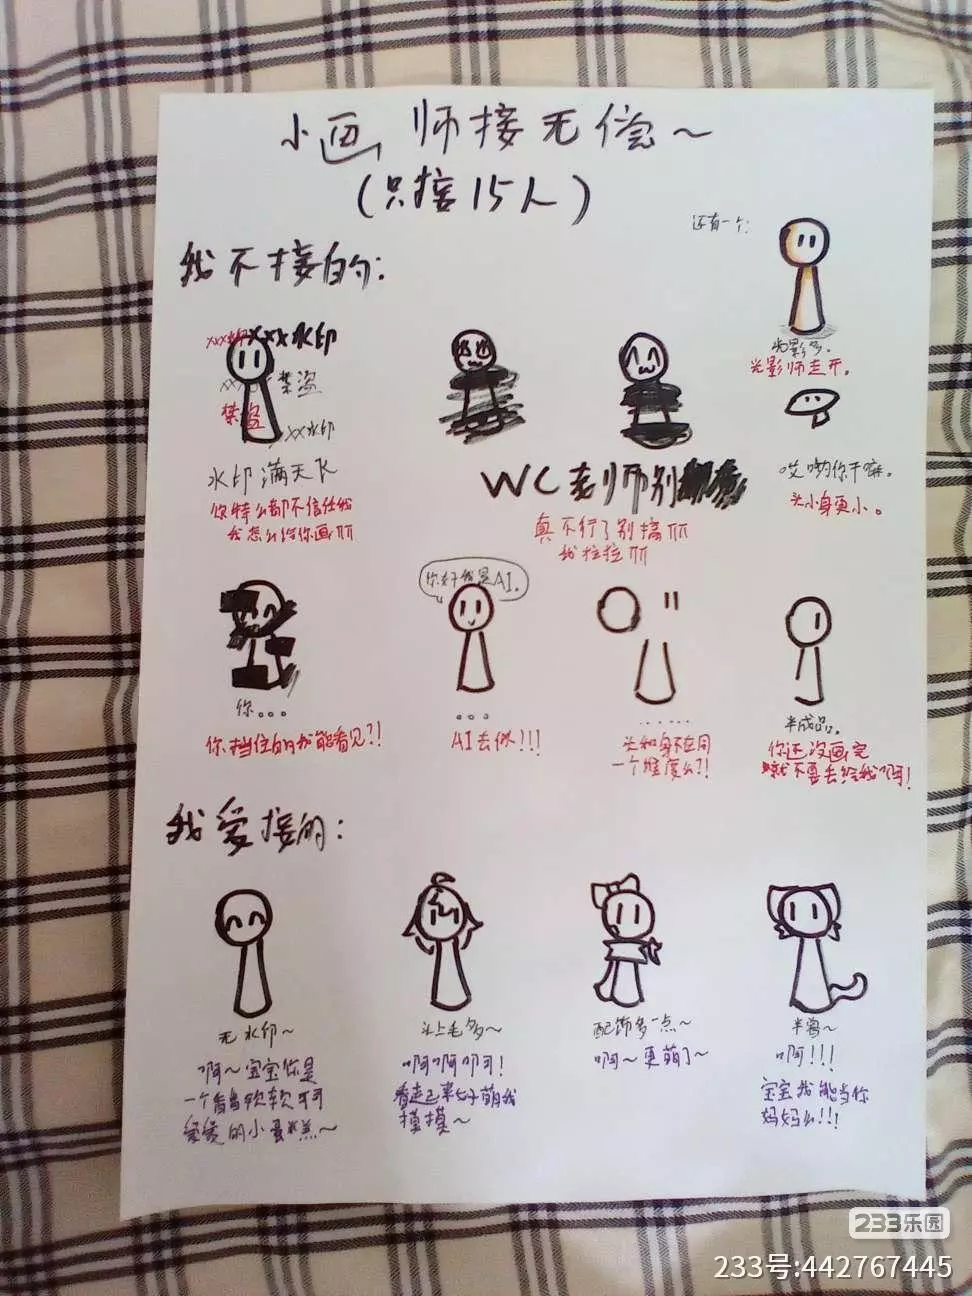 小画师接无偿～
(只接15人)
我不接的：
还有一个：
光影多。
光影师走开。
xxx水印
xxx水印
禁盗
禁盗
xx水印
水印满天飞
你特么都不信任我
我怎么给你画
WC老师别
真不行了别搞
我拉拉
哎哟你干嘛。
头小身更小。
你...
你挡住的我能看见?!
你好我是AI。
...
AI去似!!!
......
头和身不在同
一个维度么?!
半成品。
你还没画完
就不要去给我啊!
我爱接的：
无水印～
啊～宝宝你是
一个香香软软可可
爱爱的小蛋糕～
头上毛多～
啊啊啊!
看起来好萌我
摸摸～
配饰多一点～
啊～更萌了～
半兽～
啊!!!
宝宝我能当你
妈妈么!!!
233乐园
233号:442767445